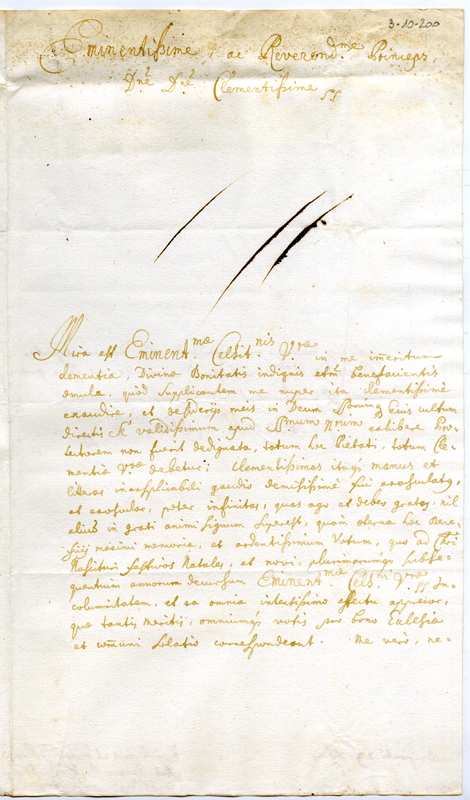 3-10-200
Eminentissime, ac Reverend.me Princeps,
Dne Dne Clementissime
Mira est Eminent.mæ Celsit.nis Vræ in me imeritum
clementia, Divinæ Bonitatis indignis etm benefacientis
æmula, quod supplicantem me nuper ita clementissimè
exaudire, et desiderijs meis in Deum Eius cultum
directis validissimum apud exhibere Pro-
tectorem non fuerit dedignata, totum hoc Pietati, totum Cle-
mentiæ Vræ debetur; Clementissimas itaq manus et
litteras inexplicabili gaudio demississimè exosculatus,
et exosculor, præter infinitas, quas ago et debeo grates, nil
aliud in grati animi signum superest, quam æterna hæc Bene-
ficij maximi memoria, et ardentissimum Votum, quo ad
Nascituri festivos Natales, et novi, plurimorumq subse-
quentium annorum decursum Eminent.mæ Cels.nis Vræ In-
columitatem, et ea omnia intectissimo affectu apprecor,
quæ tantis Meritis, omniumq votis pro bono Ecclesiæ
et comuni solatio correspondeant. Me verò, ne-